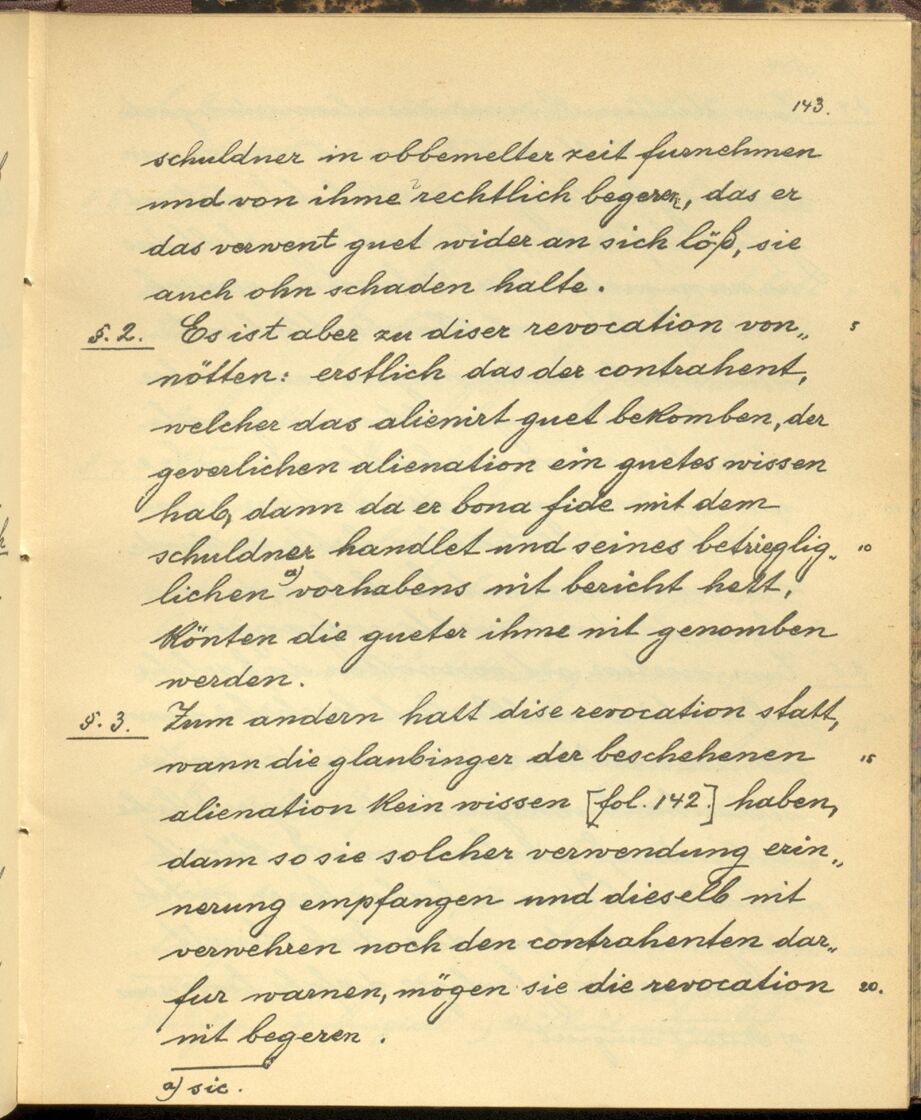 143.
schuldner in obbemelter zeit furnehmen
und von ihme rechtlich begeren, das er
das verwent guet wider an sich löß, sie
auch ohn schaden halte.
§. 2. Es ist aber zu diser revocation von„ 5
nötten: erstlich das der contrahent,
welcher das alienirt guet bekomben, der
geverlichen alienation ein guetes wissen
hab, dann da er bona fide mit dem
schuldner handlet und seines betrieglig„ 10
lichen a) vorhabens nit bericht hett,
könten die gueter ihme nit genomben
werden.
§. 3. Zum andern hatt dise revocation statt,
wann die glaubinger der beschehenen 15
alienation kein wissen [fol. 142.] haben,
dann so sie solcher verwendung erin„
nerung empfangen und dieselb nit
verwehren noch den contrahenten dar„
fur warnen, mögen sie die revocation 20.
nit begeren.
a) sic.